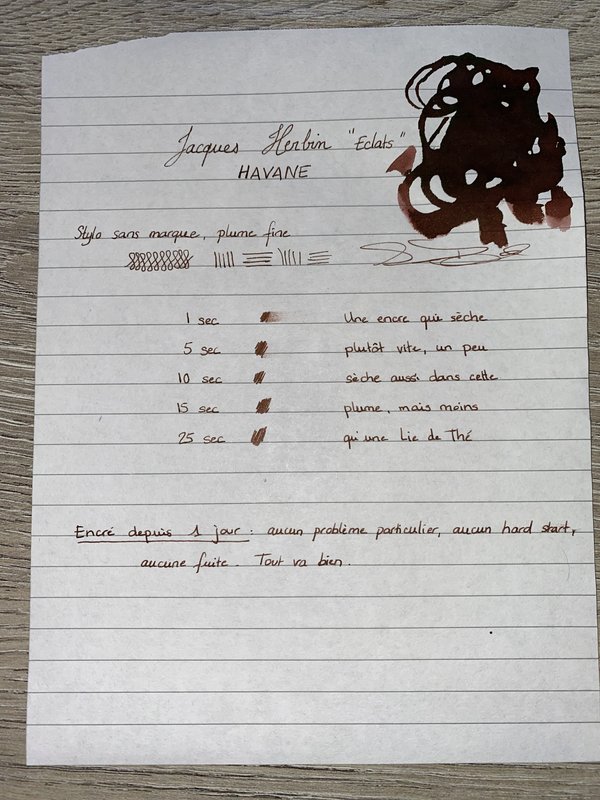 Jacques Herbin "Eclats"
HAVANE
Stylo sans marque, plume fine
1 sec
5 sec
10 sec
15 sec
25 sec
Une encre qui sèche
plutôt vite, un peu
sèche aussi dans cette
plume, mais moins
qu'une Lie de Thé
Encré depuis 1 jour : aucun problème particulier, aucun hard start,
aucune fuite. Tout va bien.